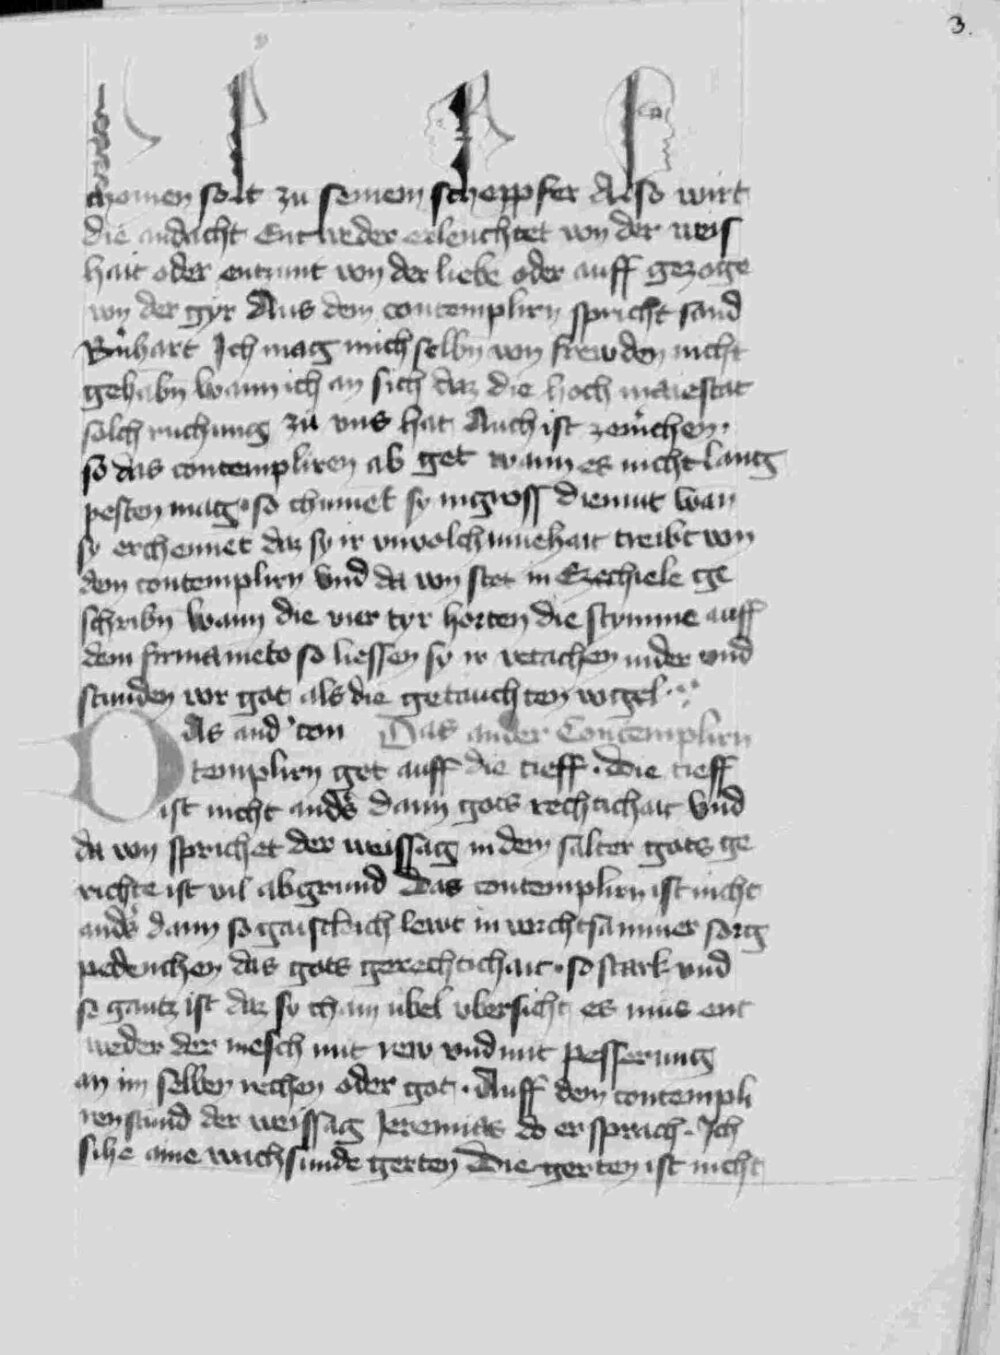 3.
chomen solt zu seinem schoppfer Also wirt
die andacht Entweder erleuchtet von der weis
hait oder entzunt von der liebe oder auff gezoge
von der gyr Aus dem contemplirn spricht sand
Bernhart Ich mag mich selbn von frewden nicht
gehabn wann ich an sich daz die hoch maiestat
solch ruchung zu vns hat Auch ist ze merchen.
so das contempliren ab get wann es nicht lang
pesten mag. so chumet sy in gross diemut wan
sy erchennet daz sy ir vnvolchumehait treibt von
dem contemplirn Vnd da von stet in Ezechiele ge
schribn Wann die vier tyr horten die stymme auff
dem firmameto so liessen sy ir vetachen nider vnd
stunden vor got als die getauchten vogel.
Das and' con Das ander Contemplirn
templirn get auff die tieff. Die tieff
ist nicht and's dann gots rechtichait Vnd
da von sprichet der weissag in dem salter gots ge
richte ist vil abgrund Das contemplirn ist nicht
and's dann so gaistleich lewt in vorchtsammer sorg
pedenchen das gots gerechtichait. so stark vnd
so gantz ist daz sy chain ubel vbersicht es mus ent
weder der mesch mit rew vnd mit pesserung
an im selben rechen oder got. Auff dem contempli
ren stund der weissag Jeremias do er sprach. Ich
sihe aine wachsunde gerten Die gerten ist nicht